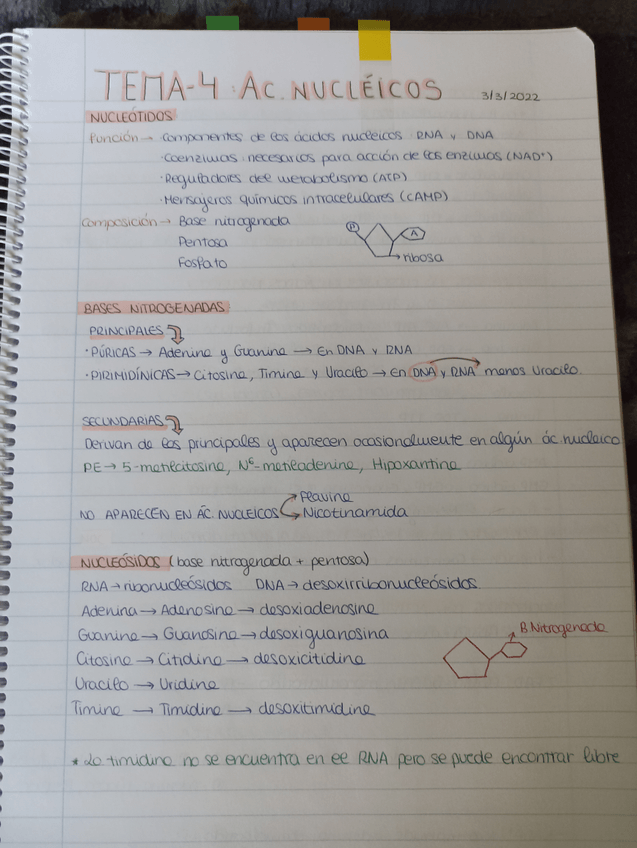 TEMA-4: AC. NUCLÉICOS 3/3/2022
NUCLEÓTIDOS
función → ·Componentes de los ácidos nucleicos RNA y DNA
·Coenzimas necesarios para acción de los enzimas (NAD⁺)
·Reguladores del metabolismo (ATP)
·Mensajeros químicos intracelulares (cAMP)
Composición → Base nitrogenada
Pentosa
Fosfato
P
A
ribosa
BASES NITROGENADAS
PRINCIPALES
·PÚRICAS → Adenina y Guanina → En DNA y RNA
·PIRIMIDÍNICAS → Citosina, Timina y Uracilo → En DNA y RNA menos Uracilo.
SECUNDARIAS
Derivan de las principales y aparecen ocasionalmente en algún ác nucleico
PE → 5-metilcitosina, N⁶-metiladenina, Hipoxantina
Flavina
NO APARECEN EN ÁC. NUCLEICOS
Nicotinamida
NUCLEÓSIDOS (base nitrogenada + pentosa)
RNA → ribonucleósidos DNA → desoxirribonucleósidos
Adenina → Adenosina → desoxiadenosina
Guanina → Guanosina → desoxiguanosina
Citosina → Citidina → desoxicitidina
Uracilo → Uridina
Timina → Timidina → desoxitimidina
B.Nitrogenada
* La timidina no se encuentra en el RNA pero se puede encontrar libre